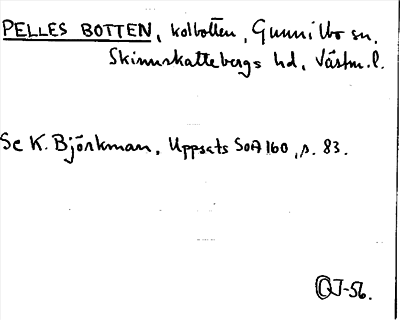 PELLES BOTTEN, kolbotten, Gunnilbo sn,
Skinnskattebergs hd, Västm. l.
Se K. Björkman, Uppsats SOA 160, s. 83.
OJ-56.